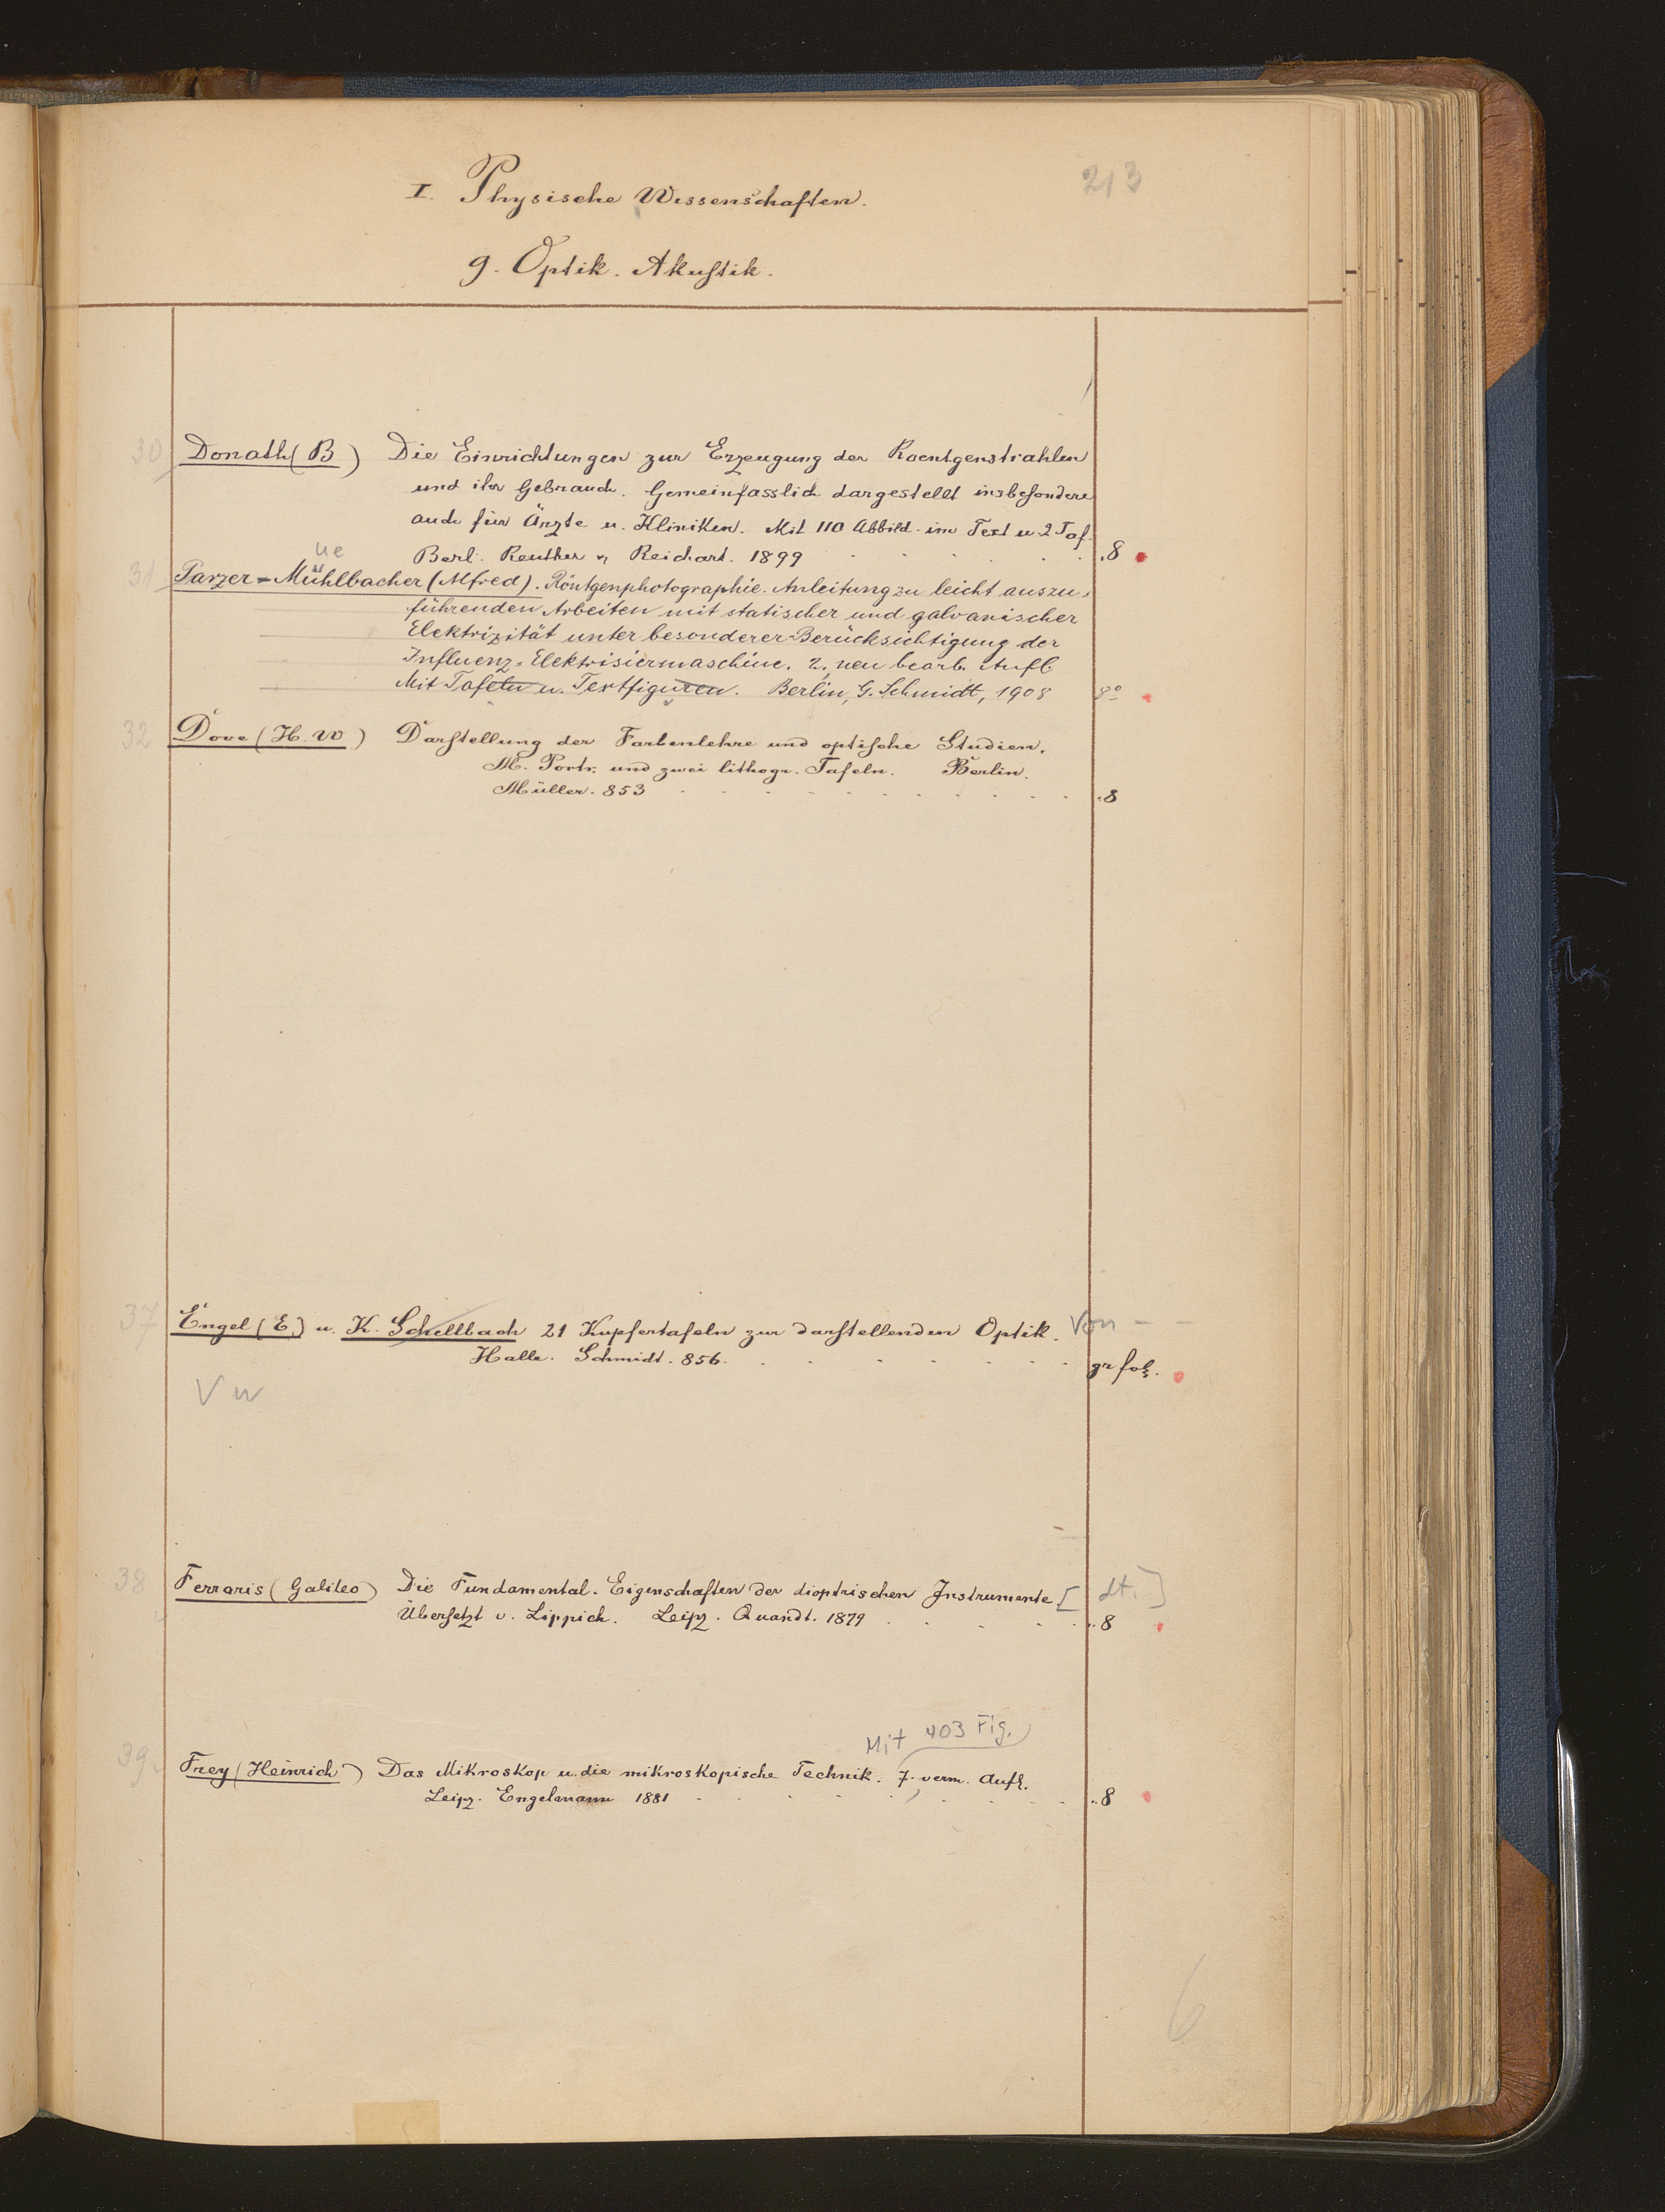 213
I. Physische Wissenschaften.
9. Optik. Akustik.
30 Donath (B) Die Einrichtungen zur Erzeugung der Roentgenstrahlen
und ihr Gebrauch. Gemeinfasslich dargestellt insbesondere
auch für Ärzte u. Kliniken. Mit 110 Abbild. im Text u. 2 Taf.
Berl. Reuther & Reichard. 1899 . . . . . 8
ue
31 Parzer-Mühlbacher (Alfred). Röntgenphotographie. Anleitung zu leicht auszu-
führenden Arbeiten mit statischer und galvanischer
Elektrizität unter besonderer Berücksichtigung der
Influenz-Elektrisiermaschine. 2, neu bearb. Aufl
Mit Tafeln u. Textfiguren. Berlin, G. Schmidt, 1908 8°
32 Dove (H. W) Darstellung der Farbenlehre und optische Studien.
M. Portr. und zwei lithogr. Tafeln. Berlin.
Müller. 853 . . . . . . . . . . . 8
37 Engel (E.) u. K. Schellbach 21 Kupfertafeln zur darstellenden Optik. Von - -
Halle. Schmidt. 856. . . . . . . . gr fol.
38 Ferraris (Galileo) Die Fundamental-Eigenschaften der dioptrischen Instrumente. [dt.]
Übersetzt v. Lippich. Leipz. Quandt. 1879 . . . . 8
Mit 403 Fig.
39. Frey (Heinrich) Das Mikroskop u. die mikroskopische Technik. 7. verm. Aufl.
Leipz. Engelmann 1881 . . . . . . . . 8
6